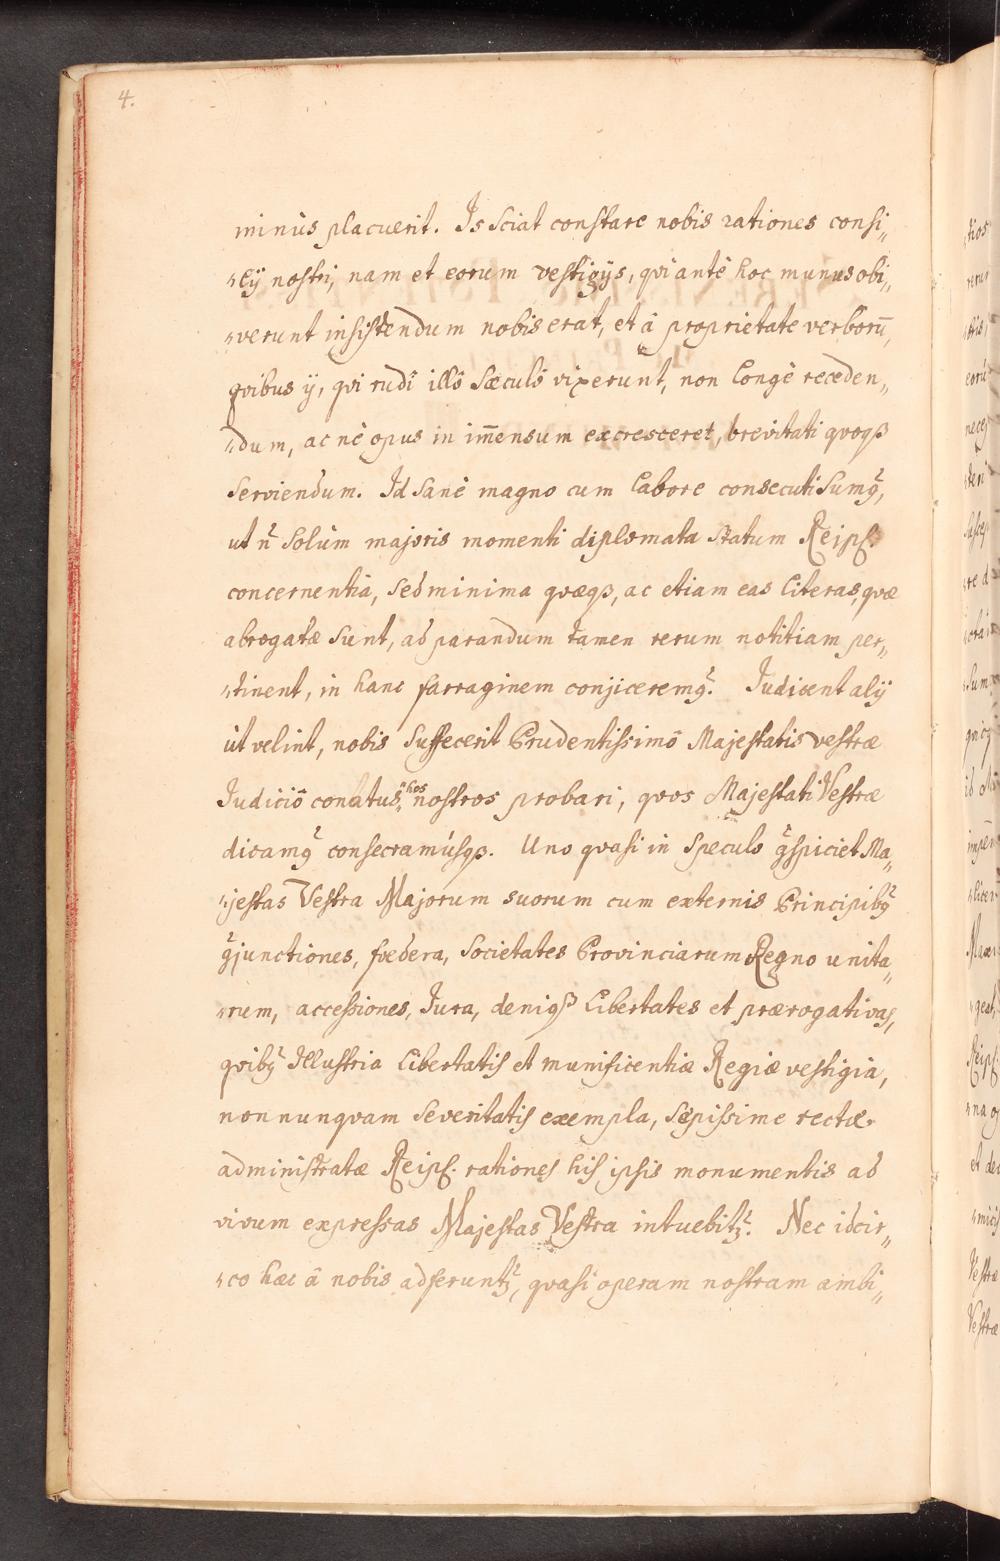 4.
minùs placuerit. Is sciat constare nobis rationes consi„
„lÿ nostri, nam et eorum vestigÿs, qvi antè hoc munus obi„
„verunt insistendum nobis erat, et à proprietate verborū,
qvibus ÿ, qvi rudî illô sæculô vixerunt, non longè receden„
„dum, ac nè opus in im̄ensum excresceret, brevitati qvoqꝫ
serviendum. Id sanè magno cum labore consecuti sumꝰ,
ut ñ solùm majoris momenti diplomata statum Reipſ.
concernentia, sed minima qvæqꝫ, ac etiam eas literas, qvæ
abrogatæ sunt, ad parandum tamen rerum notitiam per„
„tinent, in hanc farraginem conjiceremꝰ. Iudicent alÿ
ùt velint, nobis suffecerit Prudentissimô Majestatis vestræ
Iudiciô conatus, hos nostros probari, qvos Majestati Vestræ
dicamꝰ consecramúsqꝫ. Uno qvasi in speculo ꝯspiciet Ma„
„jestas Vestra Majorum suorum cum externis Principibꝰ
ꝯjunctiones, fœdera, societates Provinciarum Regno unita„
„rum, accessiones, Iura, deniqꝫ Libertates et prærogativas,
qvibꝰ Illustria Libertatis et munificentiæ Regiæ vestigia,
non nunqvam severitatis exempla, sępissime rectæ.
administratæ Reipſ. rationes his ipsis monumentis ad
vivum expressas Majestas Vestra intuebitꝛ. Nec idcir„
„co hæc â nobis adferuntꝛ, qvasi operam nostram ambi„